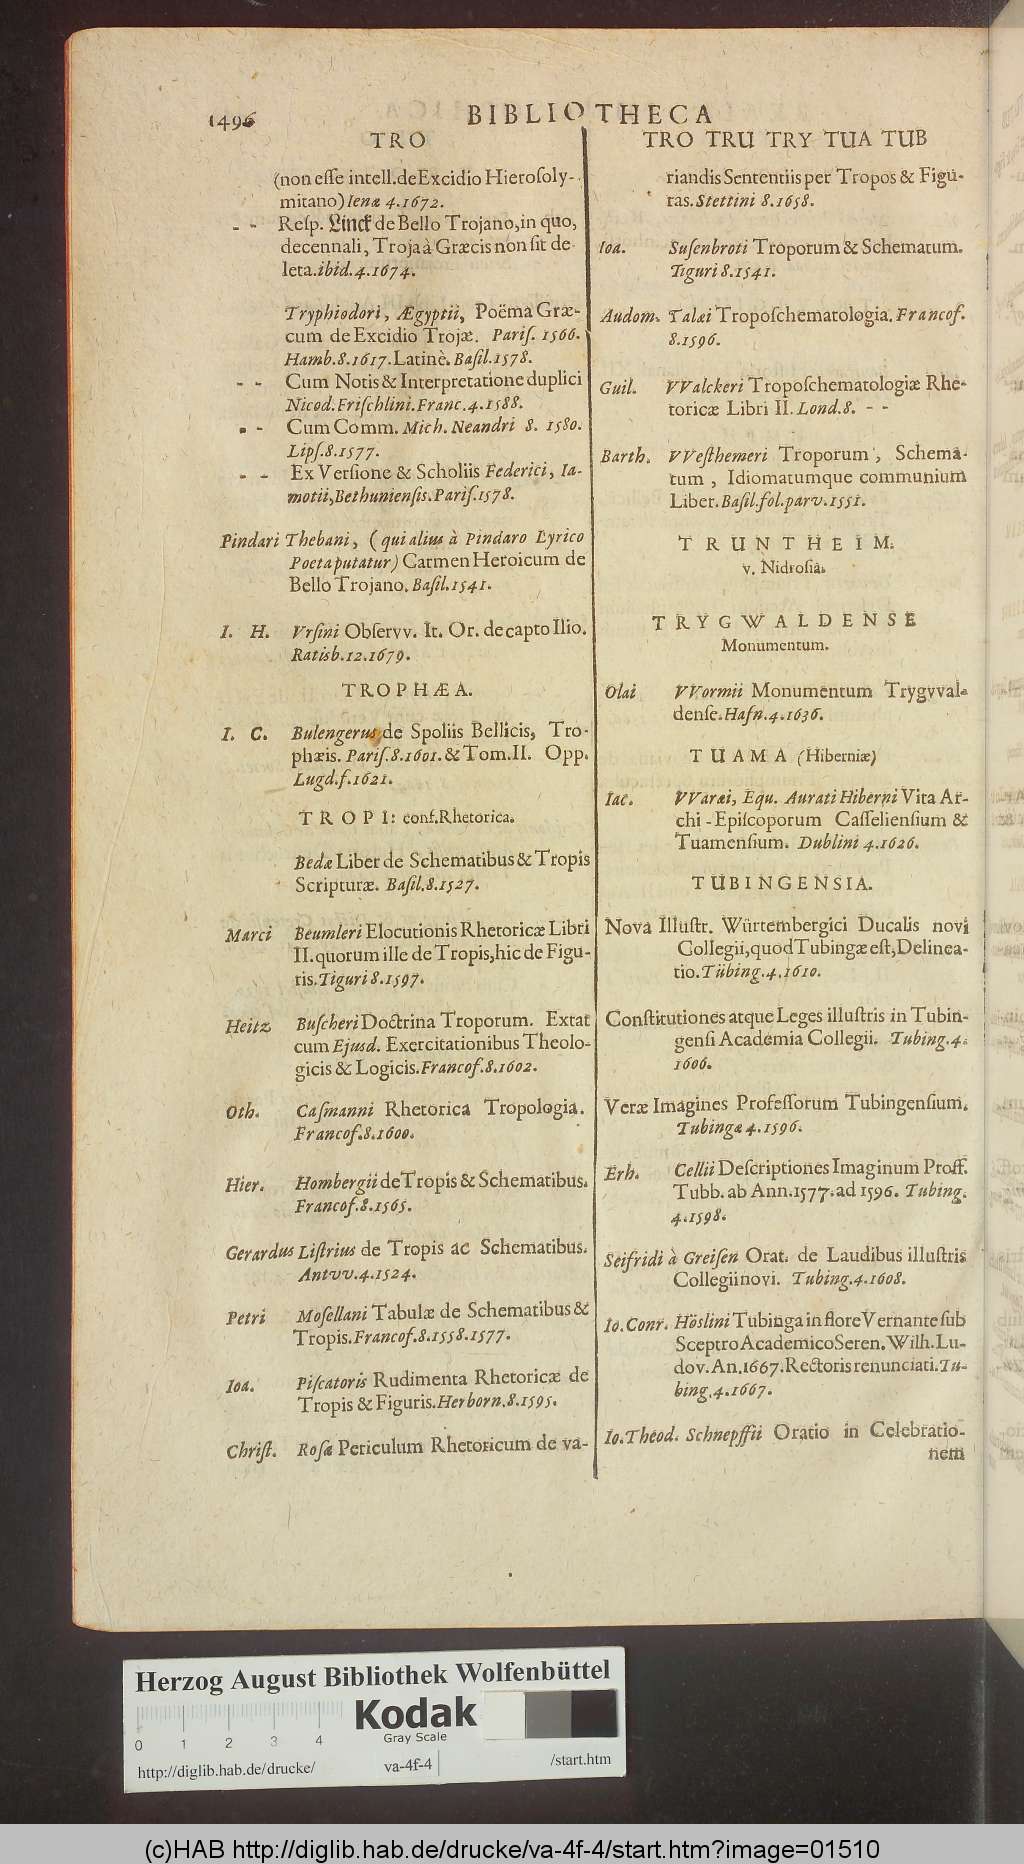 1496
BIBLIOTHECA
TRO
(non esse intell. de Excidio Hierosoly-
mitano) Ienæ 4. 1672.
- - Resp. Linck de Bello Trojano, in quo,
decennali, Troja à Græcis non sit de-
leta. ibid. 4. 1674.
Tryphiodori, Ægyptii, Poëma Græ-
cum de Excidio Trojæ. Paris. 1566.
Hamb. 8. 1617. Latinè. Basil. 1578.
- - Cum Notis & Interpretatione duplici
Nicod. Frischlini. Franc. 4. 1588.
- - Cum Comm. Mich. Neandri 8. 1580.
Lips. 8. 1577.
- - Ex Versione & Scholiis Federici, Ia-
motii, Bethuniensis. Paris. 1578.
Pindari Thebani, (qui alius à Pindaro Lyrico
Poeta putatur) Carmen Heroicum de
Bello Trojano. Basil. 1541.
I. H. Vrsini Observv. It. Or. de capto Ilio.
Ratisb. 12. 1679.
TROPHÆA.
I. C. Bulengerus de Spoliis Bellicis, Tro-
phæis. Paris. 8. 1601. & Tom. II. Opp.
Lugd. f. 1621.
TROPI: conf. Rhetorica.
Bedæ Liber de Schematibus & Tropis
Scripturæ. Basil. 8. 1527.
Marci Beumleri Elocutionis Rhetoricæ Libri
II. quorum ille de Tropis, hic de Figu-
ris. Tiguri 8. 1597.
Heitz Buscheri Doctrina Troporum. Extat
cum Ejusd. Exercitationibus Theolo-
gicis & Logicis. Francof. 8. 1602.
Oth. Casmanni Rhetorica Tropologia.
Francof. 8. 1600.
Hier. Hombergii de Tropis & Schematibus.
Francof. 8. 1565.
Gerardus Listrius de Tropis ac Schematibus.
Antvv. 4. 1524.
Petri Mosellani Tabulæ de Schematibus &
Tropis. Francof. 8. 1558. 1577.
Ioa. Piscatoris Rudimenta Rhetoricæ de
Tropis & Figuris. Herborn. 8. 1595.
Christ. Rosæ Periculum Rhetoricum de va-
TRO TRU TRY TUA TUB
riandis Sententiis per Tropos & Figu-
ras. Stettini 8. 1658.
Ioa. Susenbroti Troporum & Schematum.
Tiguri 8. 1541.
Audom. Talæi Troposchematologia. Francof.
8. 1596.
Guil. VValckeri Troposchematologiæ Rhe-
toricæ Libri II. Lond. 8. - -
Barth. VVesthemeri Troporum, Schema-
tum, Idiomatumque communium
Liber. Basil. fol. parv. 1551.
TRUNTHEIM.
v. Nidrosia.
TRYGWALDENSE
Monumentum.
Olai VVormii Monumentum Trygvval-
dense. Hafn. 4. 1636.
TUAMA (Hiberniæ)
Iac. VVaræi, Equ. Aurati Hiberni Vita Ar-
chi-Episcoporum Casseliensium &
Tuamensium. Dublini 4. 1626.
TUBINGENSIA.
Nova Illustr. Würtembergici Ducalis novi
Collegii, quod Tubingæ est, Delinea-
tio. Tübing. 4. 1610.
Constitutiones atque Leges illustris in Tubin-
gensi Academia Collegii. Tubing. 4.
1606.
Veræ Imagines Professorum Tubingensium.
Tubingæ 4. 1596.
Erh. Cellii Descriptiones Imaginum Proff.
Tubb. ab Ann. 1577. ad 1596. Tubing.
4. 1598.
Seifridi à Greisen Orat. de Laudibus illustris
Collegii novi. Tubing. 4. 1608.
Io. Conr. Höslini Tubinga in flore Vernante sub
Sceptro Academico Seren. Wilh. Lu-
dov. An. 1667. Rectoris renunciati. Tu-
bing. 4. 1667.
Io. Theod. Schnepffii Oratio in Celebratio-
nem
Herzog August Bibliothek Wolfenbüttel
Kodak
Gray Scale
0 1 2 3 4
http://diglib.hab.de/drucke/ va-4f-4 /start.htm
(c)HAB http://diglib.hab.de/drucke/va-4f-4/start.htm?image=01510